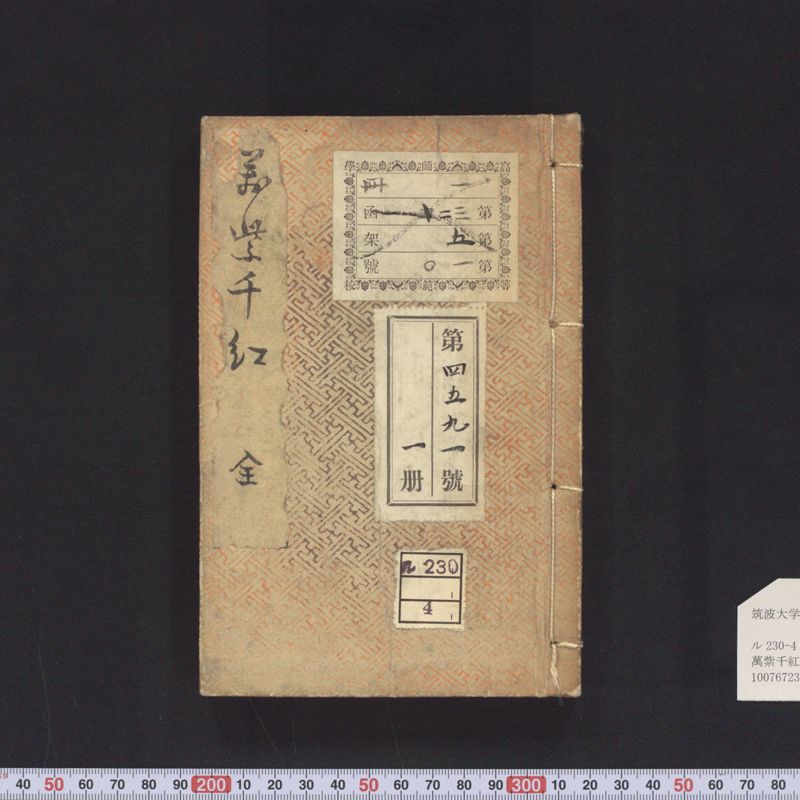 萬紫千紅 全
高等師範學校
第三二十一函
第五架
第一〇號
第四五九一號
一册
ル 230
4
筑波大学
ル 230-4
萬紫千紅
10076723
40 50 60 70 80 90 200 10 20 30 40 50 60 70 80 90 300 10 20 30 40 50 60 70 80